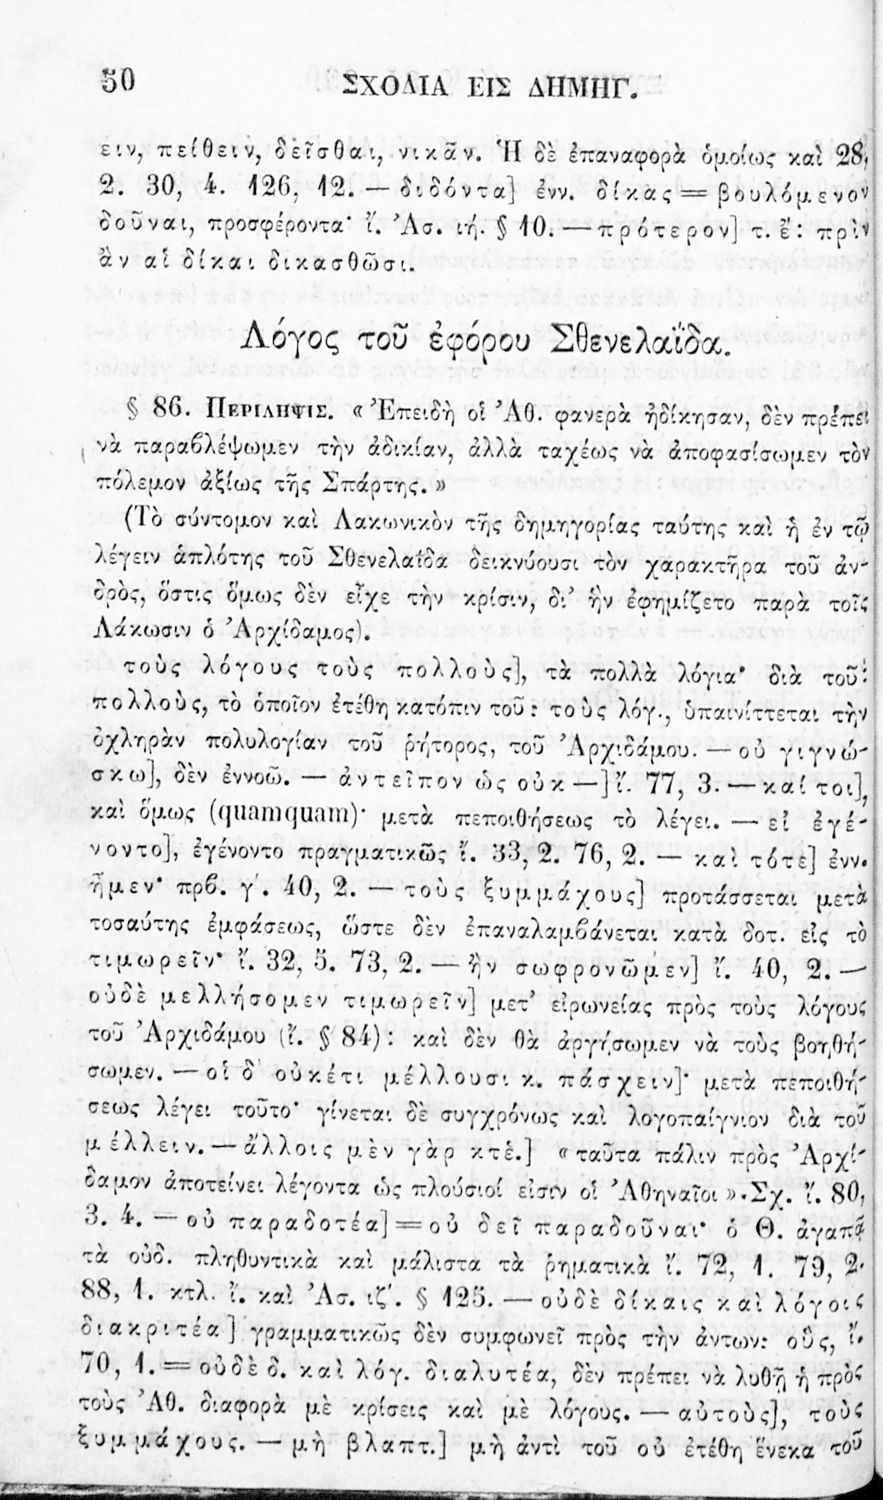 50 ΣΧΟΛΙΑ ΕΙΣ ΔΗΜΗΓ.
ειν, πείθειν, δεῖσθαι, νικᾶν. Ἡ δὲ ἐπαναφορὰ ὁμοίως καὶ 28,
2. 30, 4. 126, 12. — διδόντα] ἐνν. δίκας = βουλόμενον
δοῦναι, προσφέροντα· ἴ. Ἀσ. ιή. § 10. — πρότερον] τ. ἔ: πρὶν
ἂν αἱ δίκαι δικασθῶσι.
Λόγος τοῦ ἐφόρου Σθενελαΐδα.
§ 86. ΠΕΡΙΛΗΨΙΣ. « Ἐπειδὴ οἱ Ἀθ. φανερὰ ἠδίκησαν, δὲν πρέπει
νὰ παραβλέψωμεν τὴν ἀδικίαν, ἀλλὰ ταχέως νὰ ἀποφασίσωμεν τὸν
πόλεμον ἀξίως τῆς Σπάρτης. »
(Τὸ σύντομον καὶ Λακωνικὸν τῆς δημηγορίας ταύτης καὶ ἡ ἐν τῷ
λέγειν ἁπλότης τοῦ Σθενελαΐδα δεικνύουσι τὸν χαρακτῆρα τοῦ ἀν-
δρὸς, ὅστις ὅμως δὲν εἶχε τὴν κρίσιν, δι' ἣν ἐφημίζετο παρὰ τοῖς
Λάκωσιν ὁ Ἀρχίδαμος).
τοὺς λόγους τοὺς πολλοὺς], τὰ πολλὰ λόγια· διὰ τοῦ:
πολλοὺς, τὸ ὁποῖον ἐτέθη κατόπιν τοῦ: τοὺς λόγ., ὑπαινίττεται τὴν
ὀχληρὰν πολυλογίαν τοῦ ῥήτορος, τοῦ Ἀρχιδάμου. — οὐ γιγνώ-
σκω], δὲν ἐννοῶ. — ἀντεῖπον ὡς οὐκ —] ἴ. 77, 3. — καίτοι],
καὶ ὅμως (quamquam)· μετὰ πεποιθήσεως τὸ λέγει. — εἰ ἐγέ-
νοντο], ἐγένοντο πραγματικῶς ἴ. 33, 2. 76, 2. — καὶ τότε] ἐνν.
ἦμεν· πρβ. γ΄. 40, 2. — τοὺς ξυμμάχους] προτάσσεται μετὰ
τοσαύτης ἐμφάσεως, ὥστε δὲν ἐπαναλαμβάνεται κατὰ δοτ. εἰς τὸ
τιμωρεῖν· ἴ. 32, 5. 73, 2. — ἢν σωφρονῶμεν] ἴ. 40, 2. —
οὐδὲ μελλήσομεν τιμωρεῖν] μετ' εἰρωνείας πρὸς τοὺς λόγους
τοῦ Ἀρχιδάμου (ἴ. § 84): καὶ δὲν θὰ ἀργήσωμεν νὰ τοὺς βοηθή-
σωμεν. — οἱ δ' οὐκέτι μέλλουσι κ. πάσχειν]· μετὰ πεποιθή-
σεως λέγει τοῦτο· γίνεται δὲ συγχρόνως καὶ λογοπαίγνιον διὰ τοῦ
μέλλειν. — ἄλλοις μὲν γὰρ κτἑ.] « ταῦτα πάλιν πρὸς Ἀρχί-
δαμον ἀποτείνει λέγοντα ὡς πλούσιοί εἰσιν οἱ Ἀθηναῖοι ». Σχ. ἴ. 80,
3. 4. — οὐ παραδοτέα] = οὐ δεῖ παραδοῦναι· ὁ Θ. ἀγαπᾷ
τὰ οὐδ. πληθυντικὰ καὶ μάλιστα τὰ ῥηματικὰ ἴ. 72, 1. 79, 2.
88, 1. κτλ. ἴ. καὶ Ἀσ. ιζ΄. § 125. — οὐδὲ δίκαις καὶ λόγοις
διακριτέα] γραμματικῶς δὲν συμφωνεῖ πρὸς τὴν ἀντων: οὓς, ἴ.
70, 1. = οὐδὲ δ. καὶ λόγ. διαλυτέα, δὲν πρέπει νὰ λυθῇ ἡ πρὸς
τοὺς Ἀθ. διαφορὰ μὲ κρίσεις καὶ μὲ λόγους. — αὐτοὺς], τοὺς
ξυμμάχους. — μὴ βλαπτ.] μὴ ἀντὶ τοῦ οὐ ἐτέθη ἕνεκα τοῦ